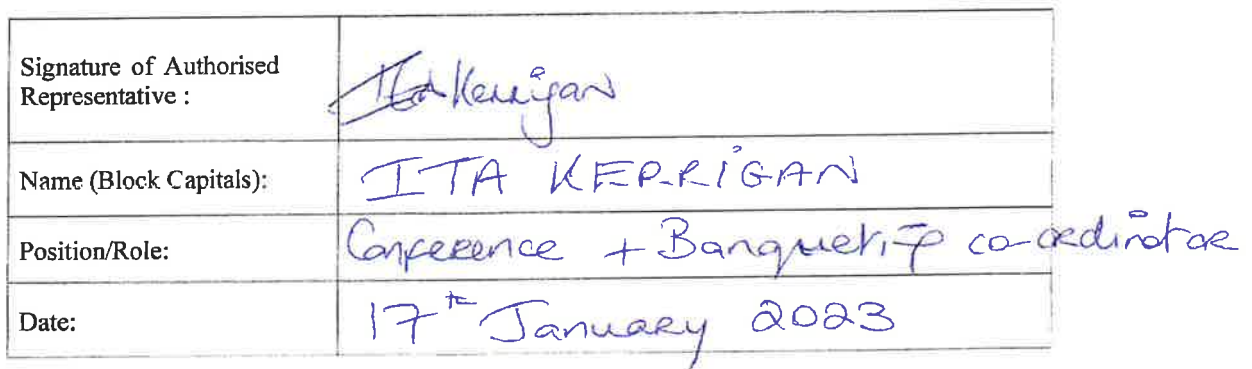 Signature of Authorised
Representative :
Ita Kerrigan
Name (Block Capitals):
ITA KERRIGAN
Position/Role:
Conference + Banqueting co-ordinator
Date:
17th January 2023